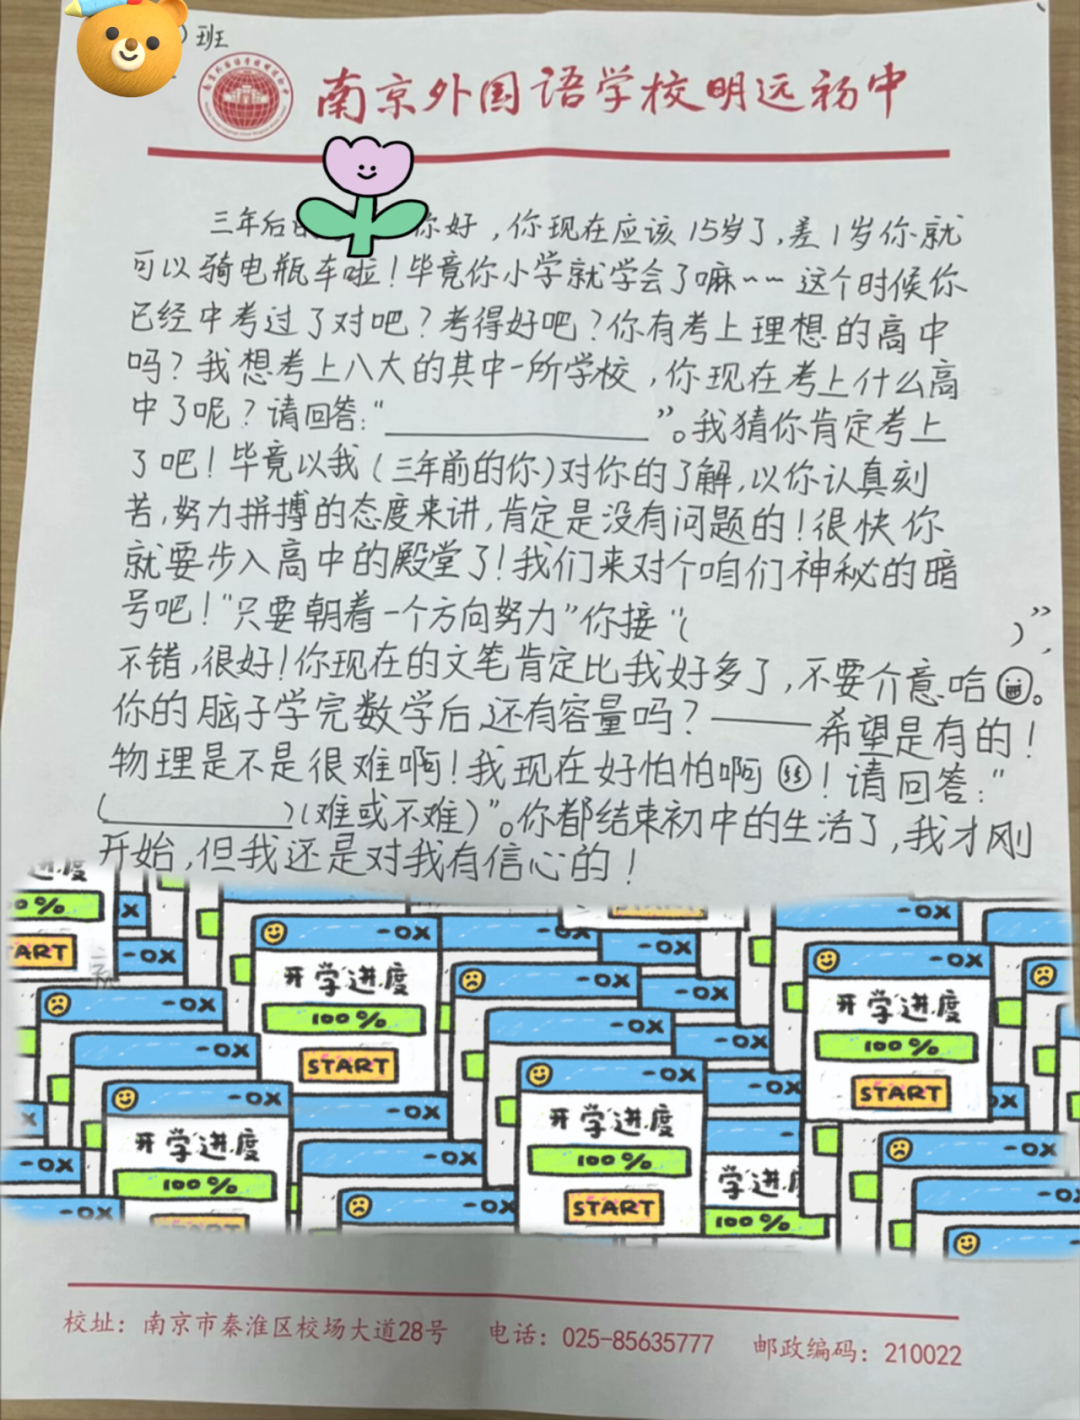 班
南京外国语学校明远初中
三年后 你好，你现在应该15岁了，差1岁你就
可以骑电瓶车啦！毕竟你小学就学会了嘛~~ 这个时候你
已经中考过了对吧？考得好吧？你有考上理想的高中
吗？我想考上八大的其中一所学校，你现在考上什么高
中了呢？请回答：“__________”。我猜你肯定考上
了吧！毕竟以我（三年前的你）对你的了解，以你认真刻
苦，努力拼搏的态度来讲，肯定是没有问题的！很快你
就要步入高中的殿堂了！我们来对个咱们神秘的暗
号吧！“只要朝着一个方向努力”你接“（ ）”，
不错，很好！你现在的文笔肯定比我好多了，不要介意哈。
你的脑子学完数学后还有容量吗？——希望是有的！
物理是不是很难啊！我现在好怕怕啊！请回答：“
（__________）（难或不难）”。你都结束初中的生活了，我才刚
开始，但我还是对我有信心的！
ART
-OX
开学进度
100%
START
-OX
开学进度
100%
START
-OX
开学进度
100%
START
-OX
开学进度
100%
START
学进
100%
校址：南京市秦淮区校场大道28号 电话：025-85635777 邮政编码：210022